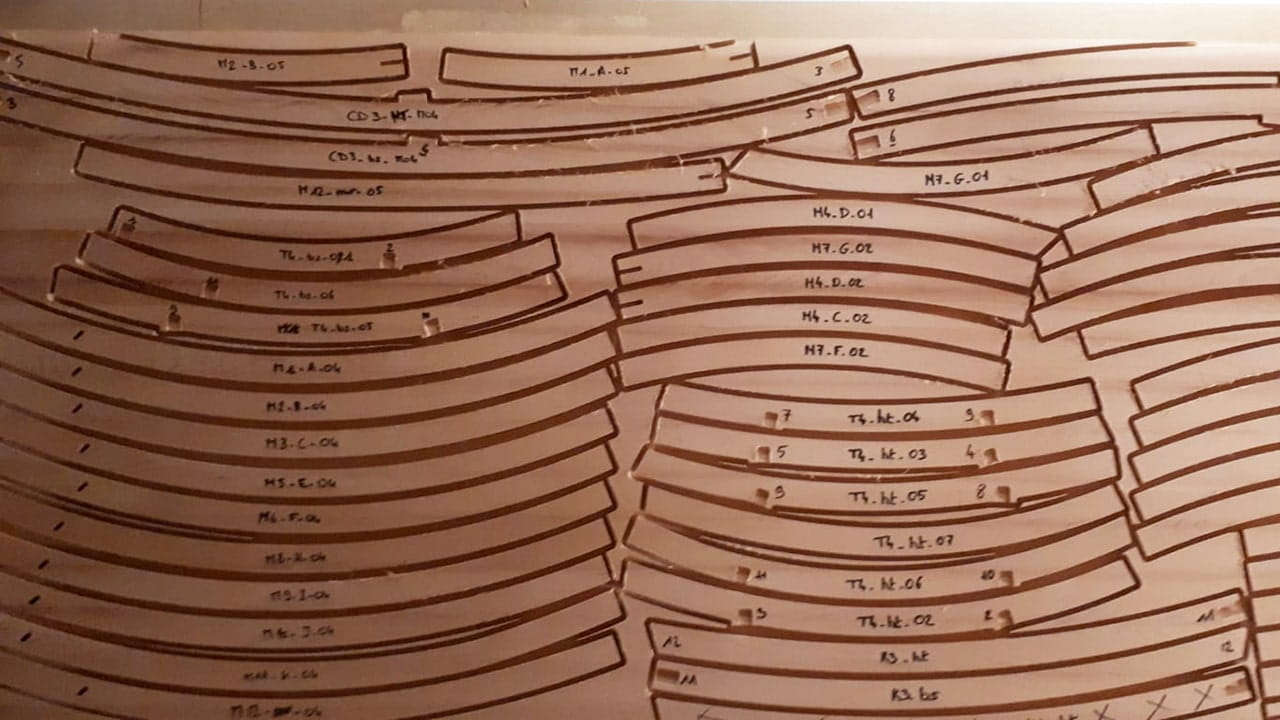 M2-B-05
M1-A-05
5
3
CD3-
M04
8
3
5
6
CD3-bs-
M12-mr-05
M7.G.01
M4.D.01
T4-bs-
2
M7.G.02
T4-bs-06
M4.D.02
2
T4-bs-05
M4.C.02
M7.F.02
M1-A-04
M2-B-04
7
T4-ht-04
M3-C-04
5
T4-ht-03
4
M5-E-04
9
T4-ht-05
8
M6-F-04
T4-ht-07
M9-I-04
11
T4-ht-06
10
T4-ht-02
J-04
12
R3-ht
11
12
11
R3-bs